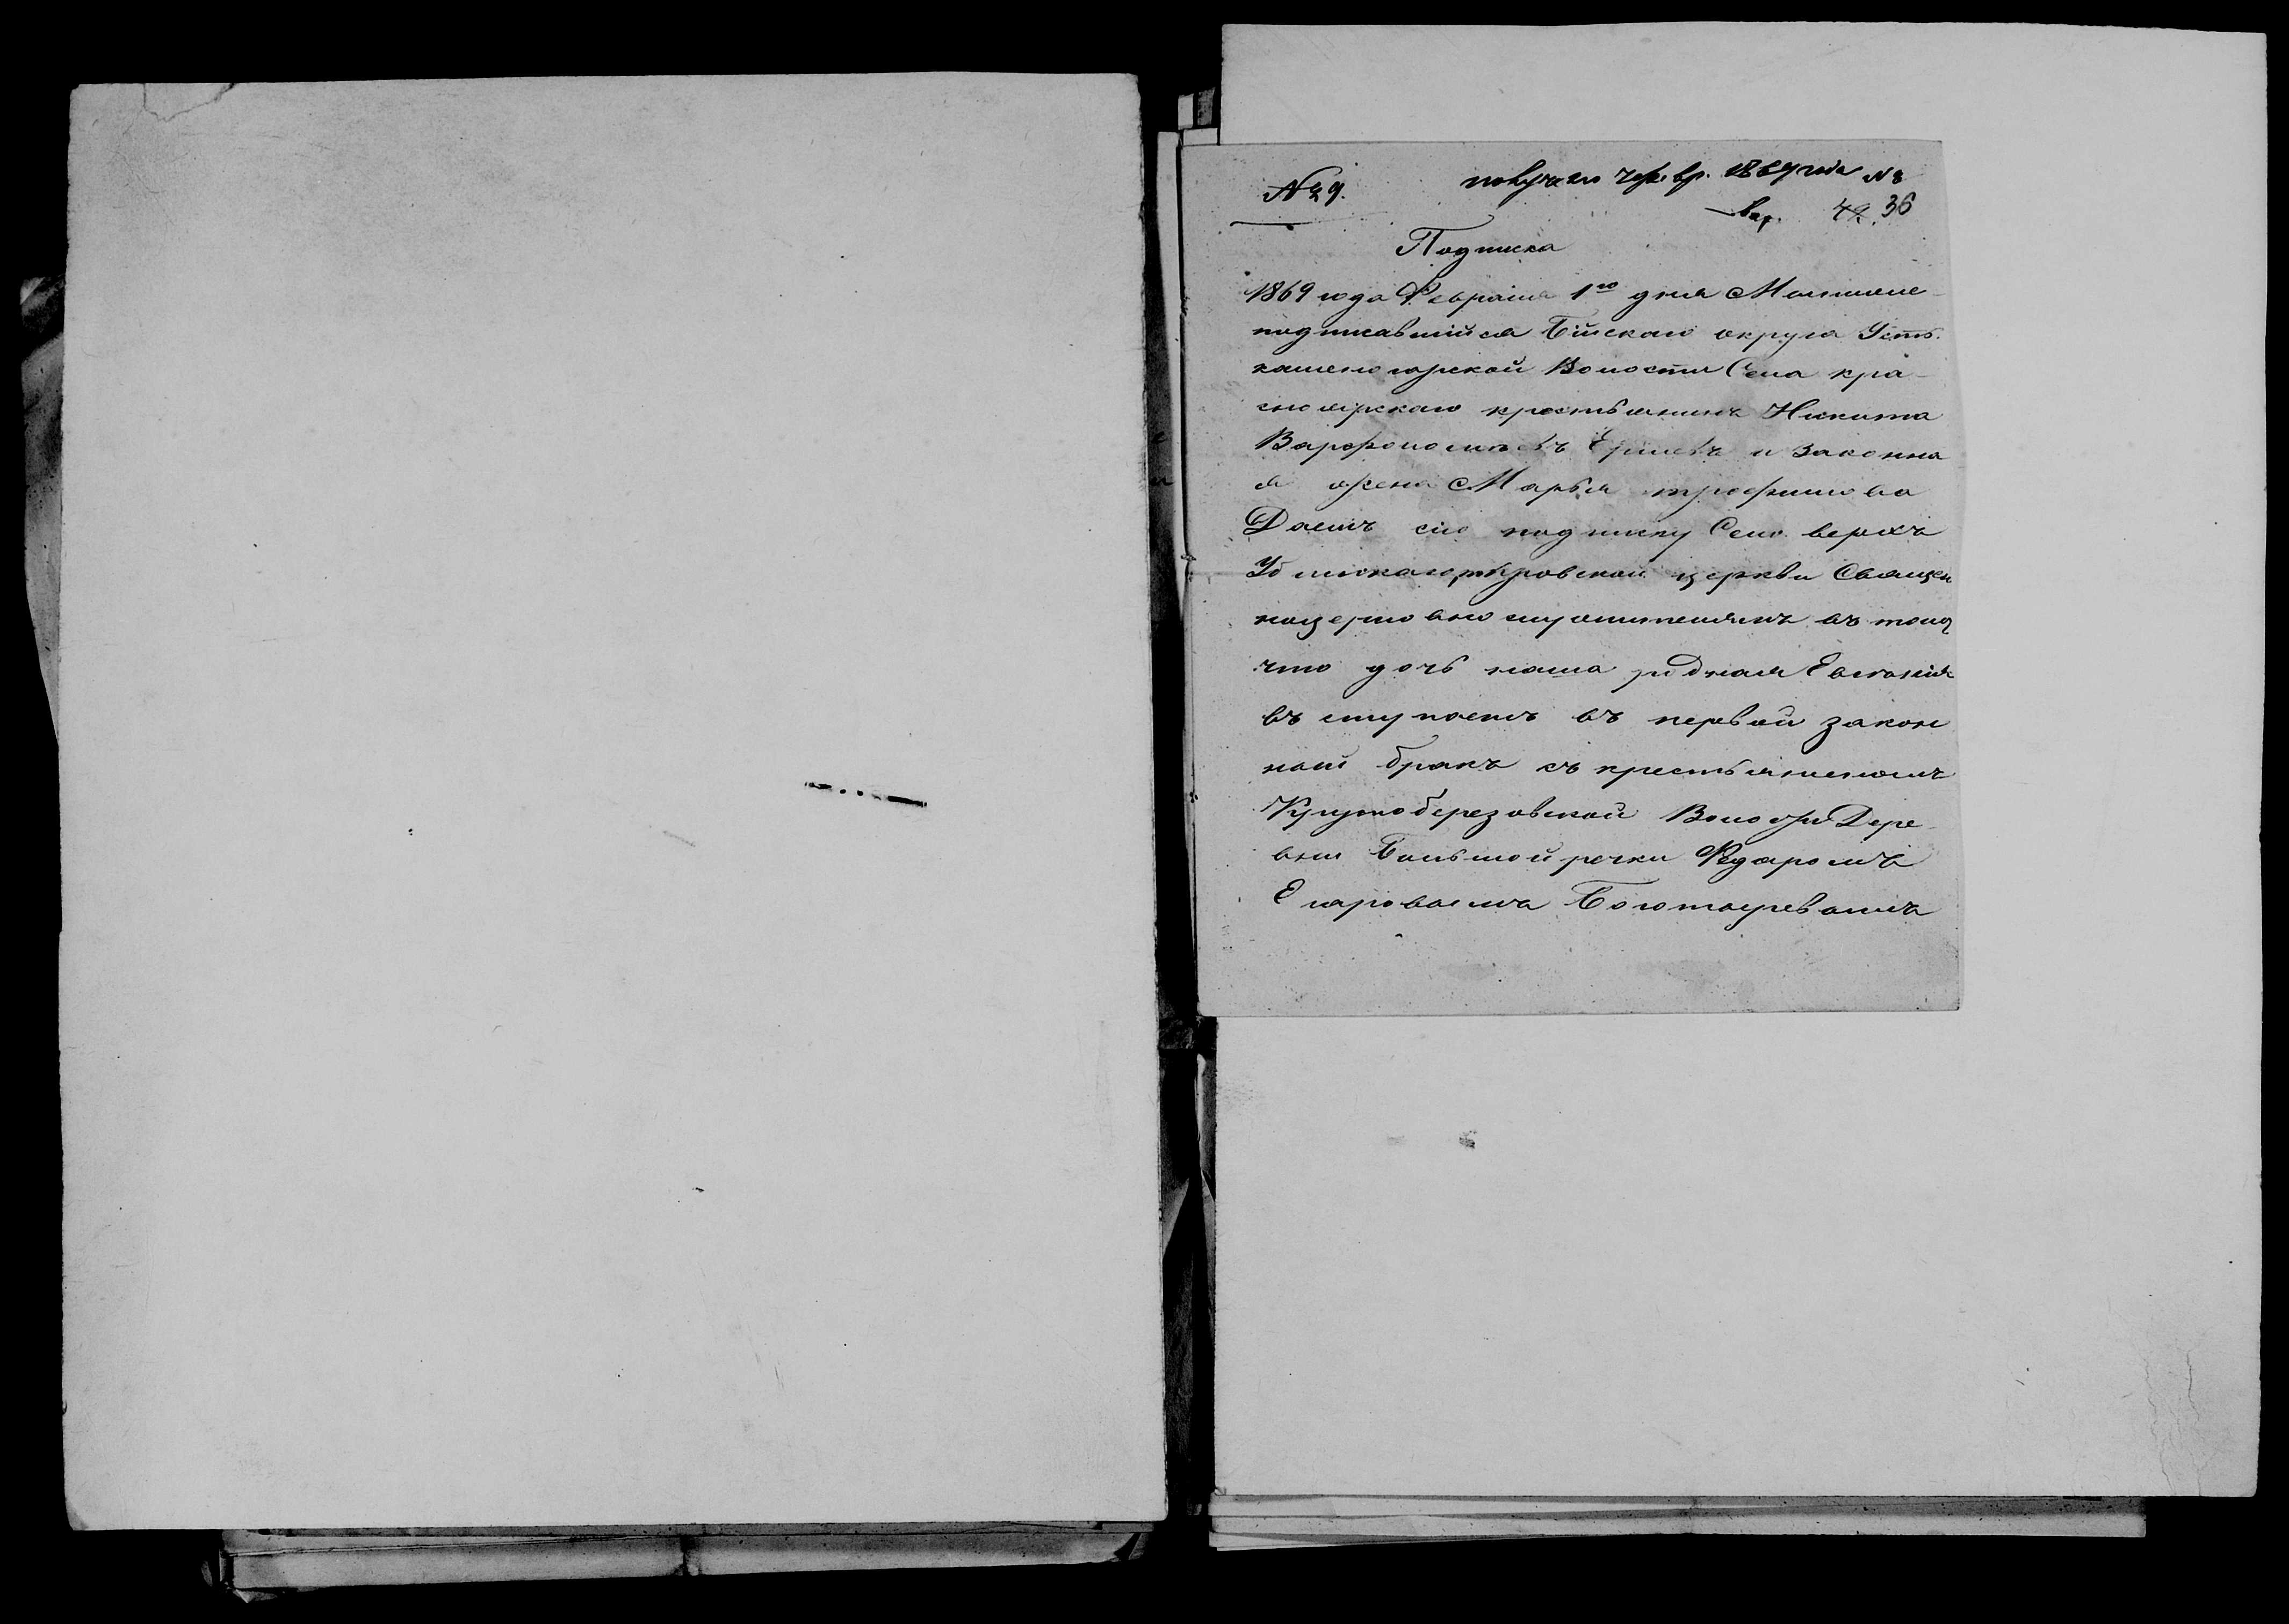 № 29. 1869 года № 8
36
Подписка
1869 года Февраля 1го дня Мыниже
подписавшийся Бійскаго округа Усть
каменогорской Волости Села кра
сноярскаго крестьянинъ Никита
Варфоломеевъ Ершевъ и Законна
я жена Марья трофимова
Даемъ сію подписку Село верхъ
Убинскаго церкви Священ
ноцерковнослужителямъ въ томъ
что дочь наша роdная Евгенія
въ ступаетъ въ первой закон
ной бракъ съ крестьяниномъ
Крутоберезовской Волости Дере
вни Большой речки Федаромъ
Егаровымъ Боготыревымъ